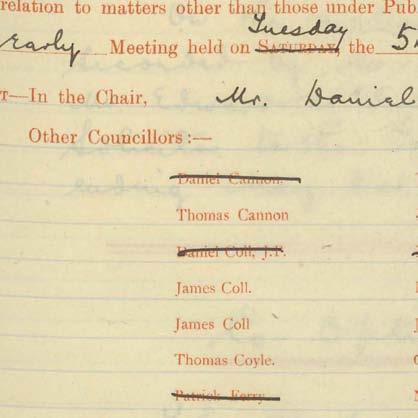 relation to matters other than those under Pub
Tuesday
early Meeting held on Saturday, the 5
T—In the Chair, Mr. Daniel
Other Councillors:—
Daniel Cannon.
Thomas Cannon
Daniel Coll, J.P.
James Coll.
James Coll
Thomas Coyle.
Patrick Ferry